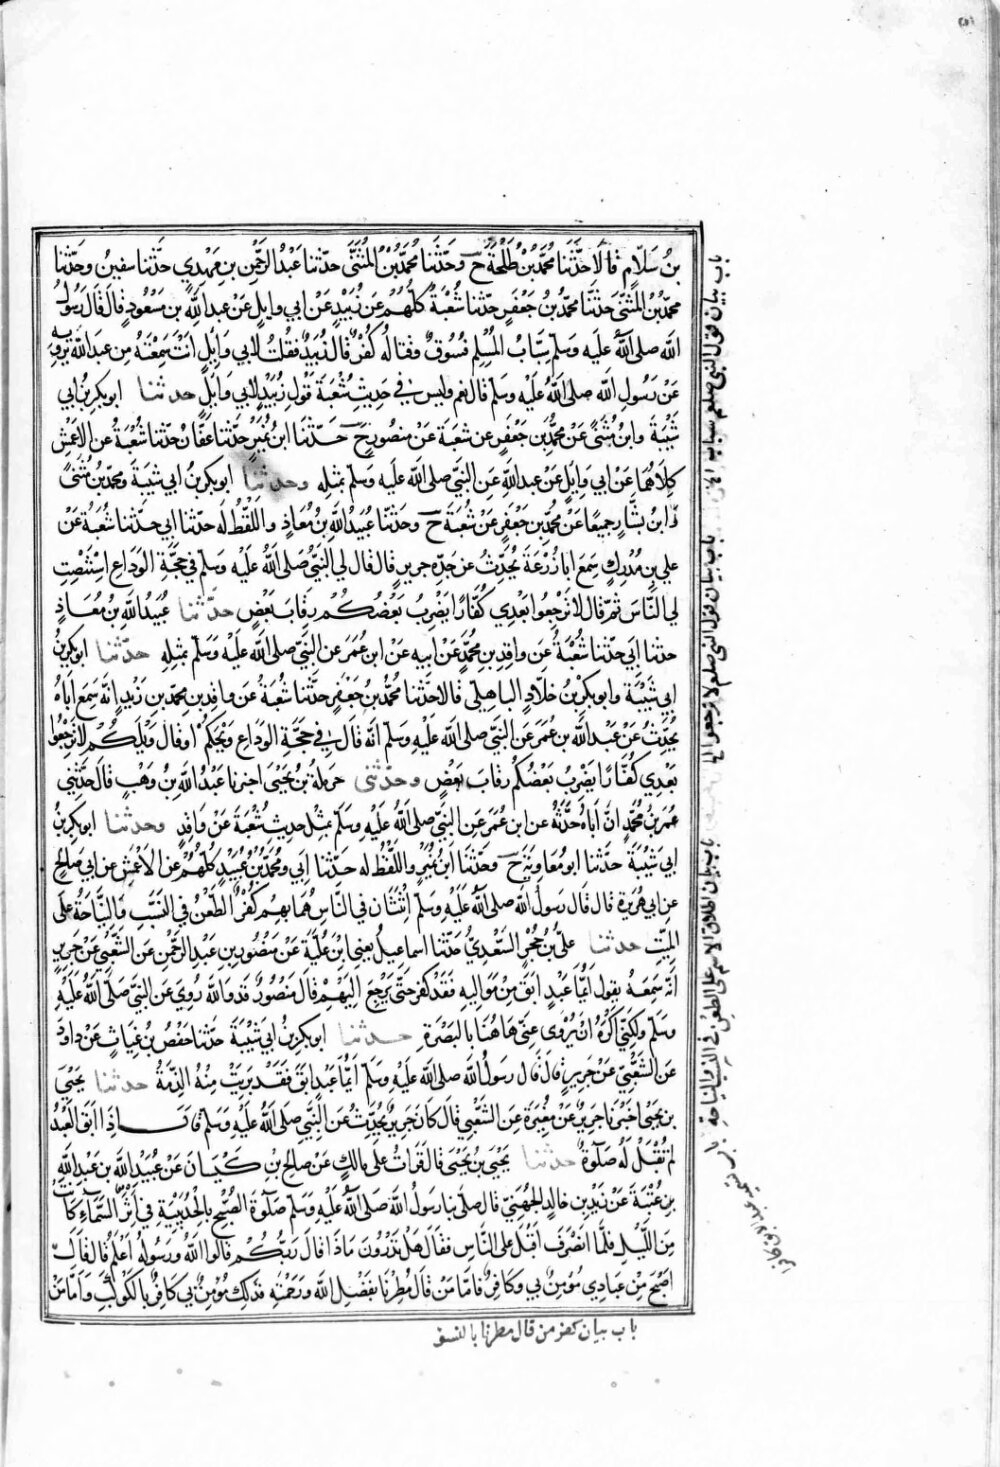 بنُ سَلَّامٍ قالَا حَدَّثَنَا مُحَمَّدُ بنُ طَلْحَةَ ح وحَدَّثَنَا مُحَمَّدُ بْنُ الْمُثَنَّى حدّثنا عَبْدُ الرَّحْمٰنِ بن مَهْدِي حَدَّثنا سفينُ وحَدّثنا
محمّدُ بنُ المُثَنَّى حَدَّثَنَا مُحَمَّدُ بنُ جَعْفَرٍ حدّثنا شُعْبَةُ كلُّهُمْ عَن زُبَيْدٍ عَنْ ابي وايلٍ عَنْ عبدِ اللهِ بن مَسْعُودٍ قالَ قَالَ رَسُولُ
الله صلى اللهُ عليه وَسَلّم سِبَابُ المُسْلِم فُسُوقٌ وقتالُه كُفْرٌ قالَ زُبَيْدٌ فقلتُ لابي وَايلٍ انتَ سَمِعْتَهُ مِن عبدِ الله يَرْويهِ
عَنْ رَسُولِ الله صلى اللهُ عَلَيْهِ وَسَلّم قال نعم وليس في حَدِيثِ شُعْبَةَ قَوْلُ زُبَيْدٍ لابي وَايلٍ حدثنا ابو بكرِ بنُ ابي
شَيْبَةَ وابنُ مُثَنّى عَنْ محمّدِ بنِ جَعْفَرٍ عن شعبَةَ عَنْ منصورٍ ح حَدّثَنَا ابنُ نُمَيْرٍ حدّثنا عَفَّانُ حدّثنا شُعْبَةُ عن الاعْمَشِ
كِلَاهُمَا عَنْ ابي وَايلٍ عَنْ عبدِ اللهِ عن النّبيّ صلى الله عليه وسلّم بمثلِهِ وحدثنا ابو بكرِ بنُ ابي شيبةَ ومحمّد بنُ مُثَنّى
وَابنُ بَشّارٍ جميعًا عَنْ محمَّدِ بنِ جَعْفَرٍ عَنْ شعْبَةَ ح وحَدّثَنَا عُبَيدُ اللهِ بنُ مُعَاذٍ واللّفْظُ لَه حَدّثنا ابي حدّثنا شُعبَةُ عَنْ
علي بنِ مُدْرِكٍ سَمِعَ ابا زُرْعَةَ يُحَدِّثُ عن جَدِّهِ جريرٍ قال قالَ لي النّبيُّ صَلى اللهُ عَلَيْهِ وسلّم في حَجَّةِ الوَدَاعِ اسْتَنْصِتِ
لي النّاسَ ثمّ قال لا تَرْجِعُوا بَعْدِي كُفّارًا يَضْرِبُ بَعْضُكُمْ رِقَابَ بَعْضٍ حدّثنا عُبيدُ اللهِ بنُ مُعَاذٍ
حدثنا ابي حدّثنا شُعْبَةُ عن واقدِ بنِ محمّدٍ عَنْ ابيه عَنْ ابن عُمَرَ عن النّبيّ صلى اللهُ عليْهِ وَسَلَّم بمثله حدّثنا ابو بكرِ بنُ
ابي شَيْبَةَ وابو بكرِ بنُ خلّادٍ الباهِليّ قالا حَدّثنا مُحَمّدُ بنُ جَعْفَرٍ حدّثنا شعْبَةُ عَنْ وَاقدِ بنِ محمّدِ بن زَيدٍ انّهُ سَمِعَ اباهُ
يُحَدِّثُ عَنْ عَبْدِ الله بن عُمَرَ عَنِ النَّبيِّ صلى اللهُ عَلَيْهِ وسَلم انّهُ قالَ في حَجَّةِ الوَدَاعِ وَيْحَكُمْ او قال وَيْلَكُمْ لا تَرْجِعُوا
بَعْدِي كُفّارًا يَضْرِبُ بَعْضُكُم رِقَابَ بَعْضٍ وحدّثني حرملةُ بنُ يَحْيَى اخبرنا عَبْدُ اللهِ بنُ وَهْبٍ قالَ حَدّثني
عُمَرُ بنُ محمّدٍ انّ اباهُ حَدَّثَهُ عن ابن عُمَرَ عن النبيّ صلى الله عليهِ وسَلَم بمثلِ حديثِ شُعْبَةَ عَنْ وَاقدٍ وحدثنا ابو بكرِ بنُ
ابي شَيْبَةَ حَدّثنا ابو مُعَاويةَ ح وحَدّثنا ابنُ نُمَيْرٍ واللّفْظُ له حَدّثنا ابي ومُحَمّدُ بنُ عُبَيدٍ كلهُمْ عن الاعْمَشِ عن ابي صَالحٍ
عن ابي هُرَيرَةَ قال قَالَ رَسُولُ اللهِ صلى اللهُ عَلَيهِ وَسَلّم اثْنَتَانِ في النّاسِ هُمَا بهِمْ كُفْرٌ الطّعْنُ في النّسَبِ وَالنِّيَاحَةُ عَلَى
المَيِّتِ حدثنا عَليُّ بنُ حُجْرٍ السَّعْدِيُّ حَدّثنا اسماعيلُ يعني ابنَ عُلَيّةَ عَنْ مَنصُورِ بنِ عَبْدِ الرّحْمٰنِ عَن الشَّعْبيّ عَنْ جَريرٍ
انّه سَمِعَهُ يقول ايُّمَا عَبْدٍ ابَقَ مِنْ مَوَاليهِ فَقَدْ كفَرَ حَتّى يَرْجِعَ اليْهِمْ قالَ مَنصُورٌ قد وَاللهِ رُوِيَ عَنِ النّبيّ صَلّى اللهُ عَلَيْهِ
وسَلّم ولكنّي اكْرَهُ ان يُرْوَى عنّي هَاهُنَا بالبَصْرَةِ حدثنا ابو بكرِ بنُ ابي شَيْبَةَ حدّثنا حَفْصُ بنُ غياثٍ عَنْ داودَ
عَن الشَّعْبيّ عَنْ جَريرٍ قالَ قَالَ رسُولُ الله صلى اللهُ عَلَيْهِ وَسَلّم ايُّمَا عَبْدٍ ابَقَ فقَدْ بَرِئَتْ مِنْهُ الذّمّةُ حدثنا يَحْيَى
بن يحيى اخبرنا جَريرٌ عَنْ مُغيرَةَ عن الشّعْبي قالَ كانَ جَريرٌ يُحَدّثُ عَنِ النّبيّ صلى اللهُ عليهِ وسَلم قالَ اذا ابَقَ العَبْدُ
لم تُقبَلْ لَهُ صَلَوةٌ حدثنا يَحْيَى بنُ يَحْيَى قالَ قَرَاتُ على مالكٍ عَنْ صالح بنِ كَيْسَانَ عَنْ عُبَيدِ اللهِ بنِ عَبْدِ اللهِ
بنِ عُتْبَةَ عَنْ زَيْدِ بن خالدٍ الجُهَنِيّ قال صلى بنا رَسُولُ اللهِ صَلى الله عليْهِ وسَلم صَلَوةَ الصُّبْحِ بالحُدَيْبِيَةِ في اثْرِ السَّمَاءِ كَانَتْ
مِنَ اللّيْلِ فلمّا انْصَرَفَ اقْبَلَ عَلى النّاسِ فقالَ هَلْ تَدْرُونَ مَاذَا قالَ رَبُّكُمْ قالوا اللهُ ورَسُولُهُ اعْلَمُ قالَ قَالَ
اصْبَحَ مِنْ عِبَادِي مُؤمِنٌ بي وكَافِرٌ فامّا مَنْ قالَ مُطِرْنَا بفَضْلِ الله ورَحْمتِهِ فذلِكَ مُؤْمِنٌ بي كَافرٌ بالكَوْكَبِ وامّا مَنْ
باب بيان قول النبي صلعم سباب
باب بيان قول النبي صلعم لا ترجعوا
باب بيان اطلاق الاسم على الطعن في النسب والنياحة
باب بيان كفر من قال مطرنا بالنسق